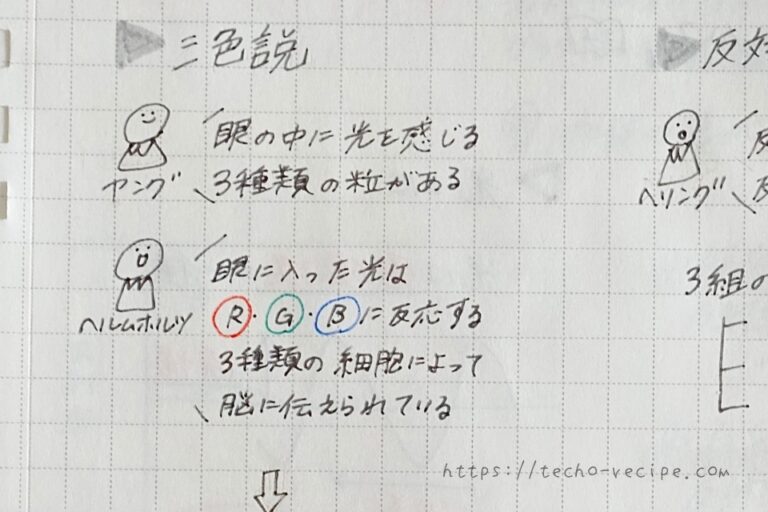 三色説
ヤング
眼の中に光を感じる
3種類の粒がある
ヘルムホルツ
眼に入った光は
R・G・Bに反応する
3種類の細胞によって
脳に伝えられている
反対
ヘリング
反
反
3組の
https://techo-recipe.com